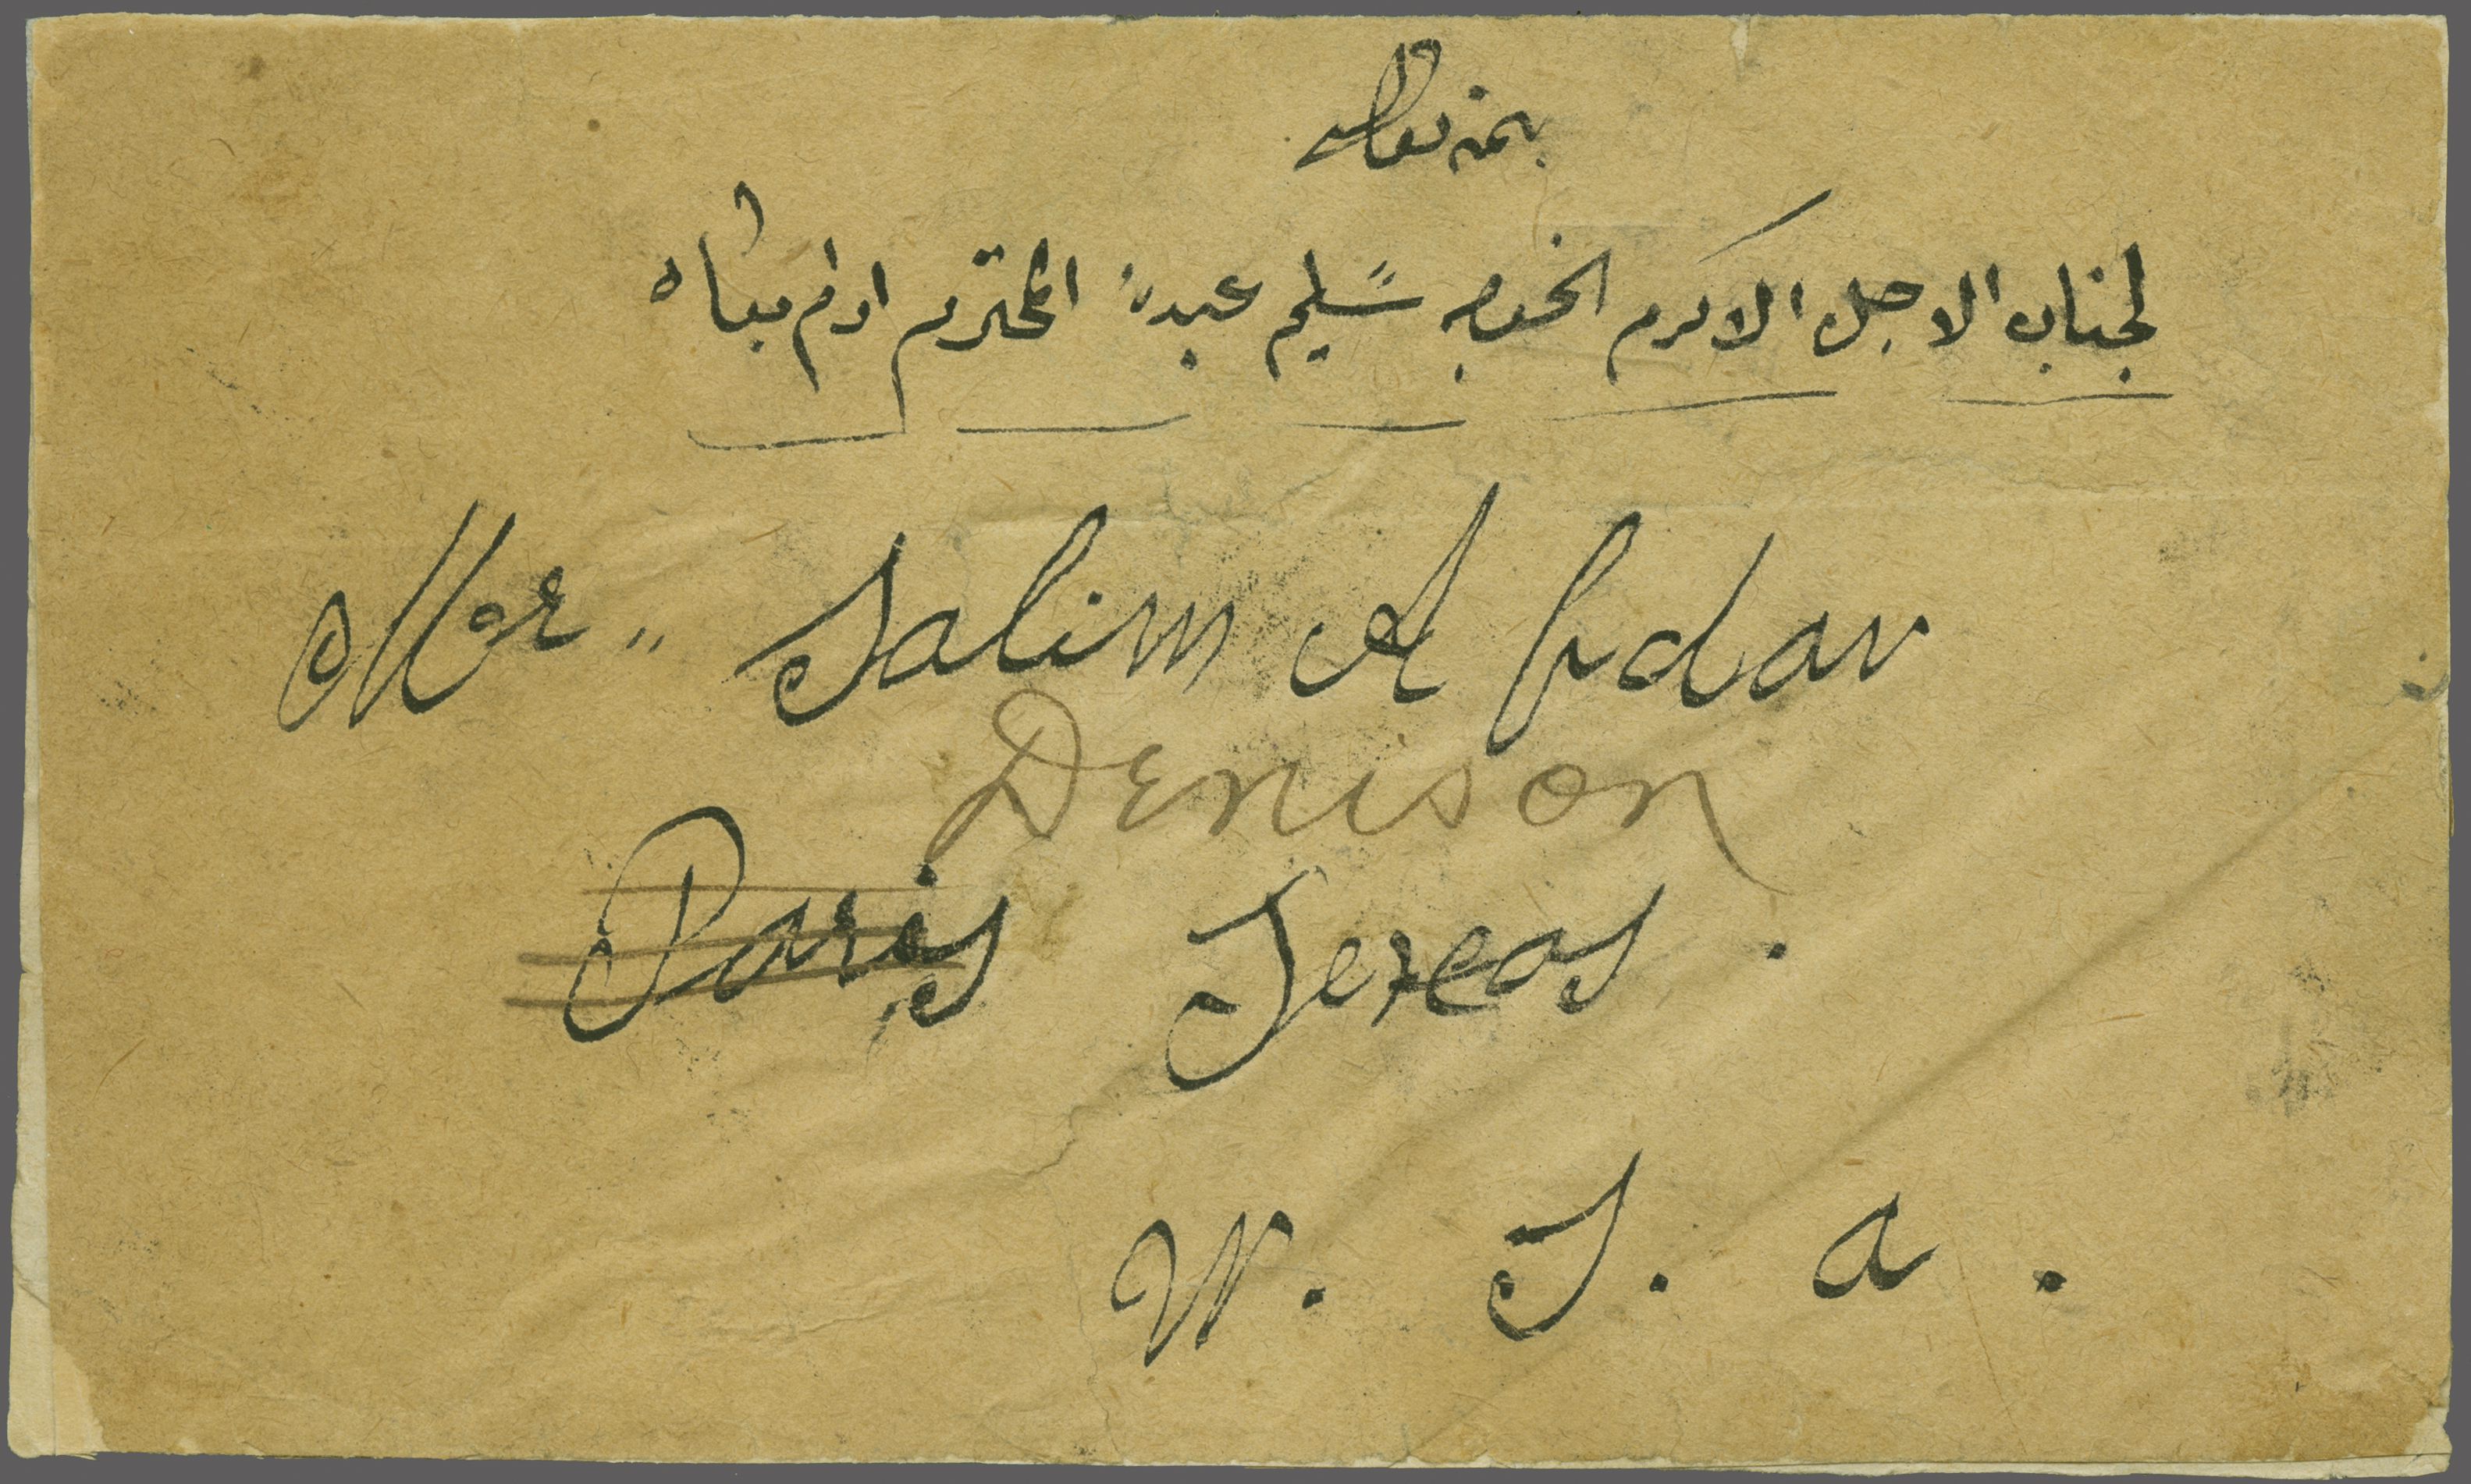 بمنه تعالى
لجناب الاجل الاكرم الخواجه سليم عبدن المحترم ادام بقاه
Mer " Salim A bdav
Denison
Paris Texas .
U. S. a .